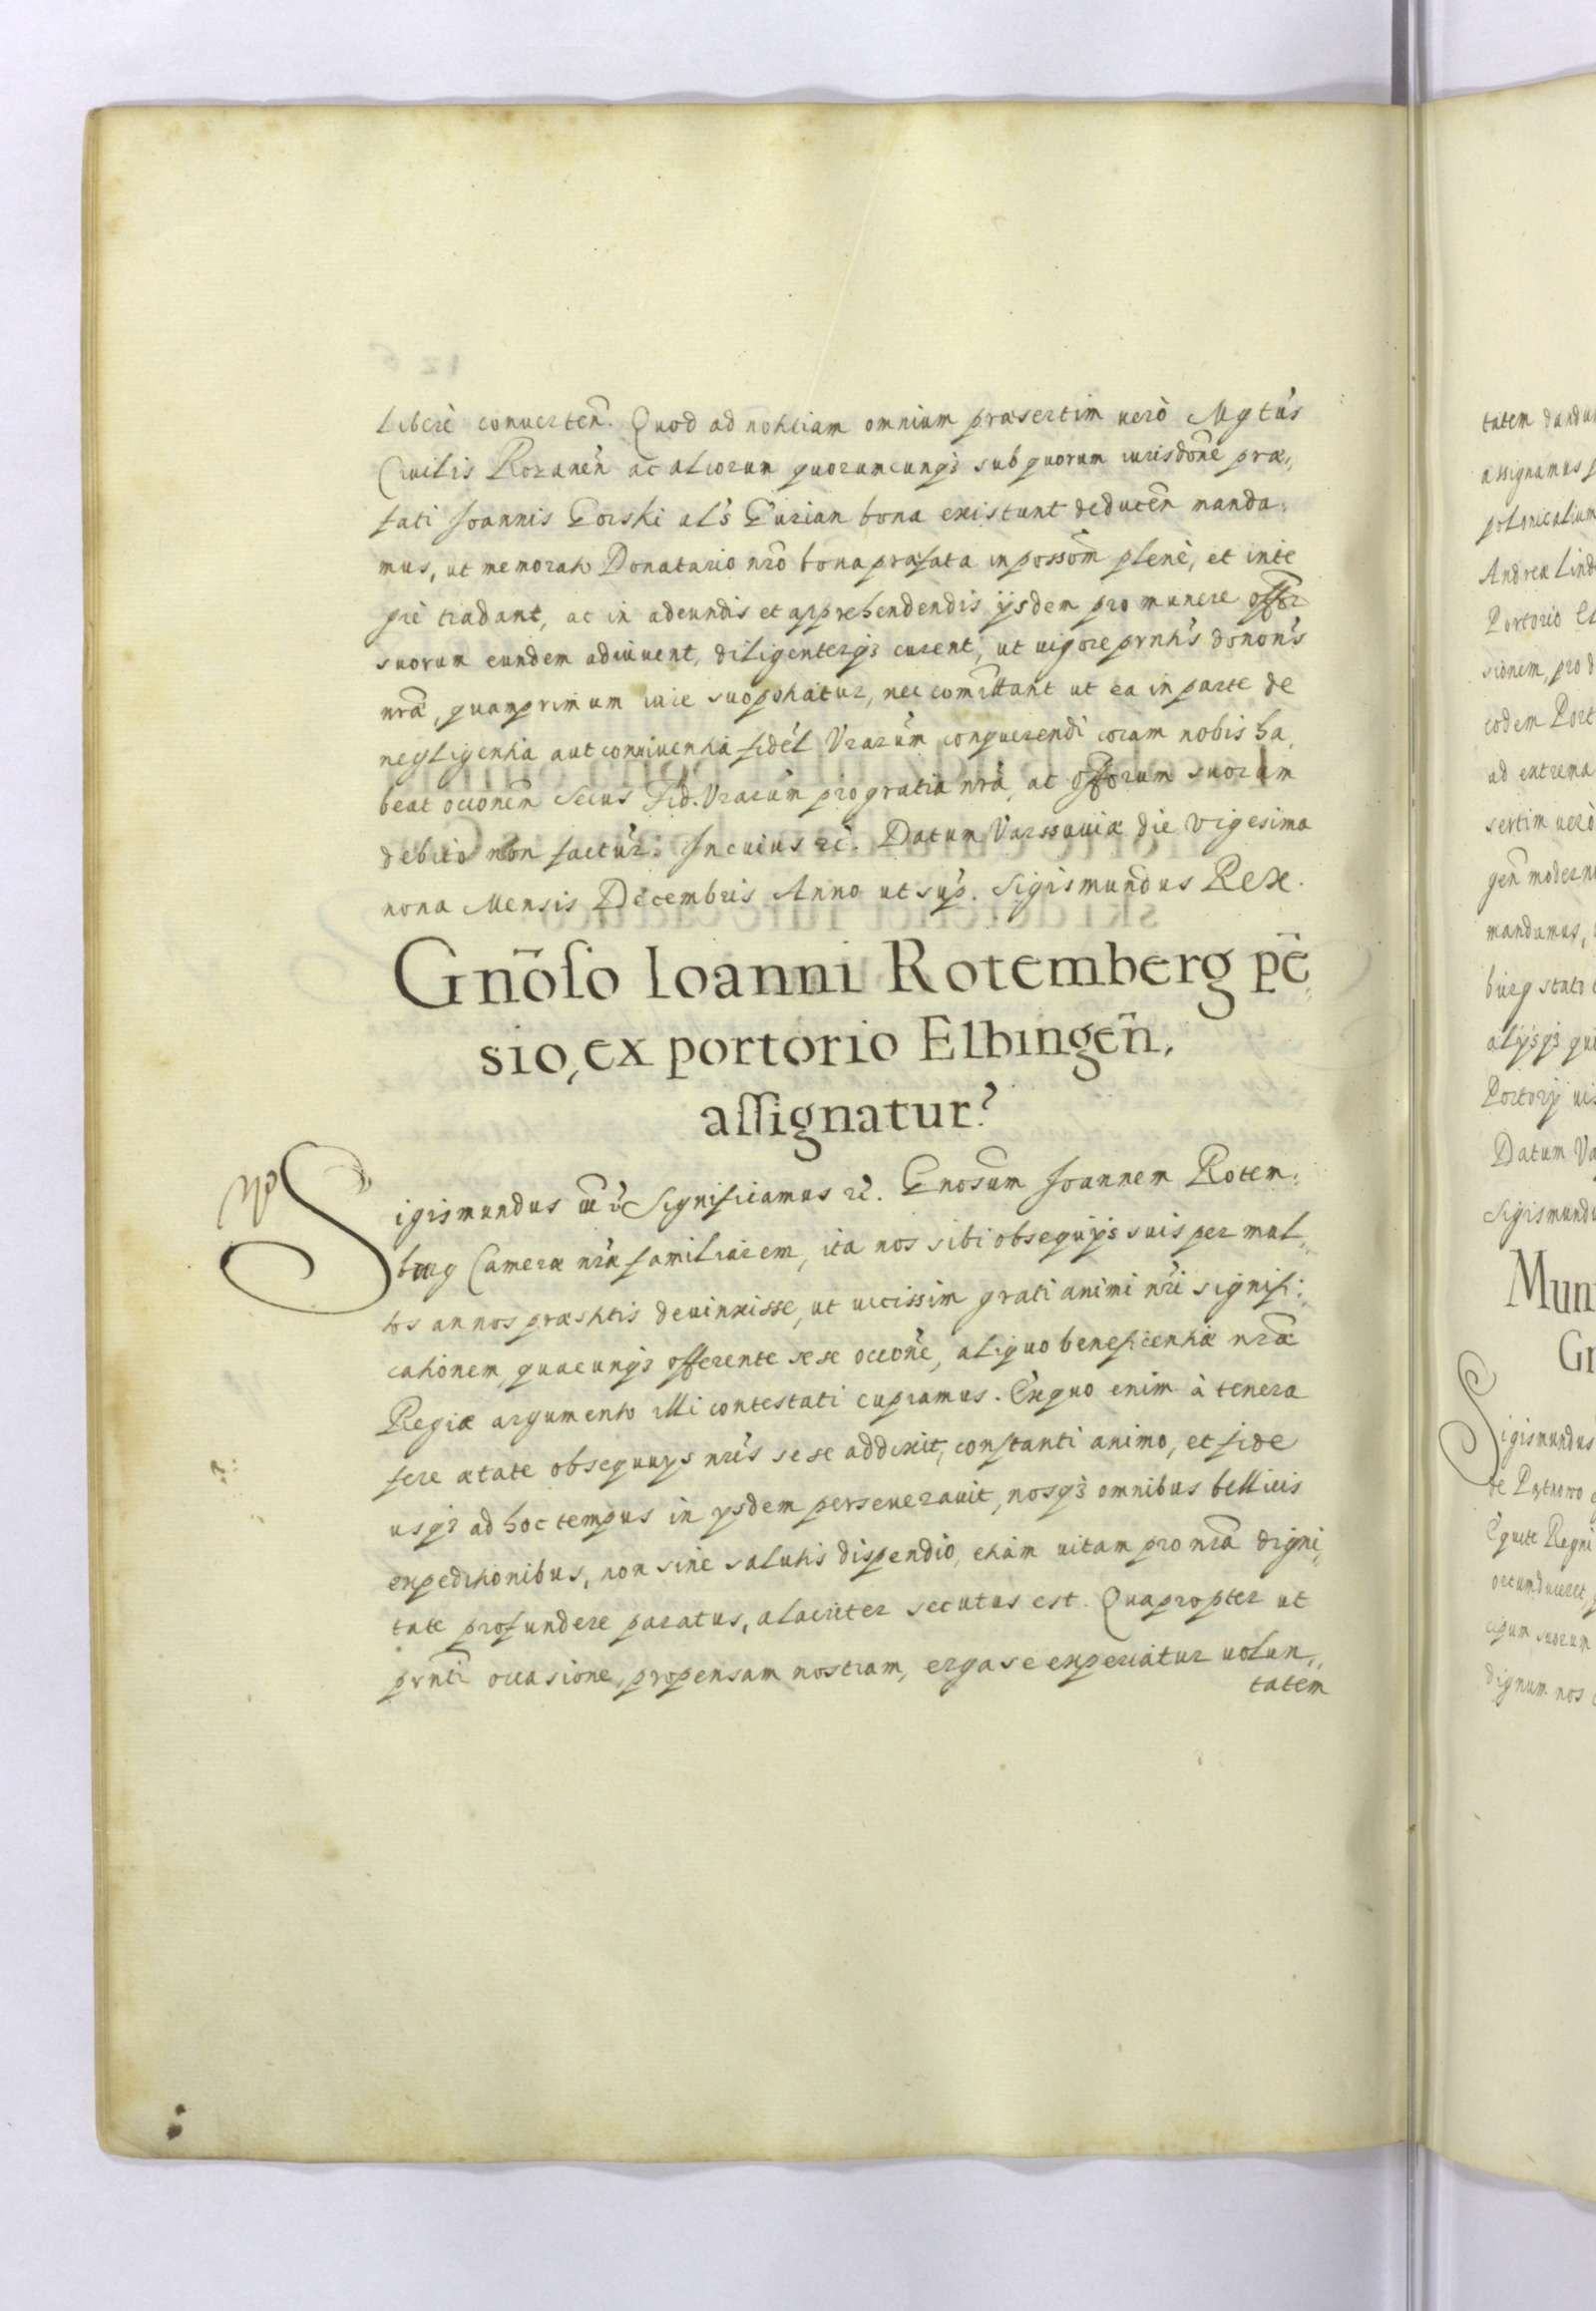 Liberè conuerten̄. Quod ad notitiam omnium præsertim uerò Mgt̾us
Ciuilis Rozanen̄ ac aliorum quorumcunqȝ sub quorum iurisdōne præ„
fati Joannis Gorski al̾s Gurian bona existunt deducen̄ manda„
mus, ut memorato Donatario nr̄o bona præfata in possōm plenè, et inte
grè tradant, ac in adeundis et apprehendendis ijsdem pro munere offōr
suorum eundem adiuuent, diligenterqȝ curent, ut uigore prn̄tis donōnis
nr̄æ, quamprimum iure suo potiatur, nec com̄ittant ut ea in parte de
negligentia aut conniuentia fidel̄ Vrarūm conquerendi coram nobis ha„
beat occonem̄ Secus Fid. Vrarūm pro gratia nr̄a, ac offōrum suorum
debito non factūr. In cuius rē. Datum Varssauiæ die vigesima
nona Mensis Decembris Anno ut sup̄. Sigismundus Rex.
Gn̄oſo Ioanni Rotemberg pē„
sio, ex portorio Elbingen̄,
aſſignatur.
Sigismundus Significamus rē. Gnosum̄ Joannem Rotem„
burg Cameræ nr̄æ familiarem, ita nos sibi obsequijs suis per mul„
tos annos præstitis deuinxisse, ut uicissim grati animi nr̄i signifi„
cationem, quacunqȝ offerente sese occōne, aliquo beneficentiæ nr̄æ
Regiæ argumento illi contestati cupiamus. Ex quo enim à tenera
fere ætate obsequijs nr̄is sese addixit, constanti animo, et fide
usqȝ ad hoc tempus in ijsdem perseuerauit, nosqȝ omnibus bellicis
expeditionibus, non sine salutis dispendio, etiam uitam pro nr̄a digni„
tate profundere paratus, alacriter secutus est. Quapropter ut
prn̄ti occasione, propensam nostram, erga se experiatur uolun„
tatem
tatem
assignamus
polonicalium
Portorio
sionem, pro
eodem Port
ad extrema
sertim uerò
gen̄ modern
mandamus,
burg stati
alijsqȝ
Portorij
Datum Va
Sigismund
Mun
Gr
Sigismundus
Equite Regni
dignum nos